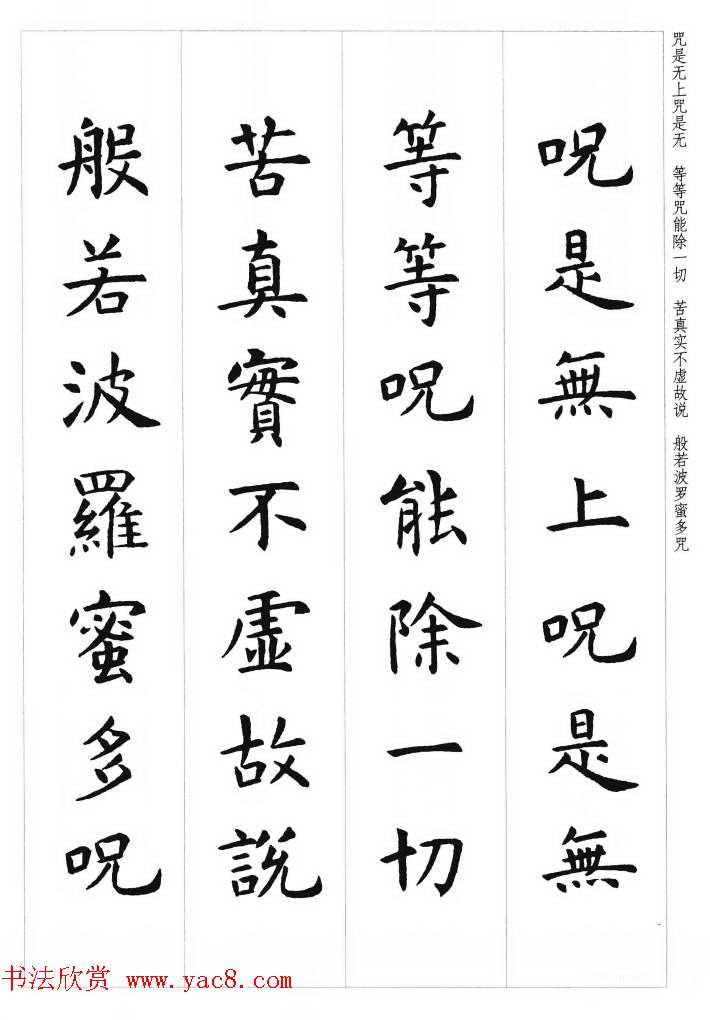 咒是无上咒是无 等等咒能除一切 苦真实不虚故说 般若波罗蜜多咒
呪是無上呪是無
等等呪能除一切
苦真實不虛故說
般若波羅蜜多呪
书法欣赏 www.yac8.com